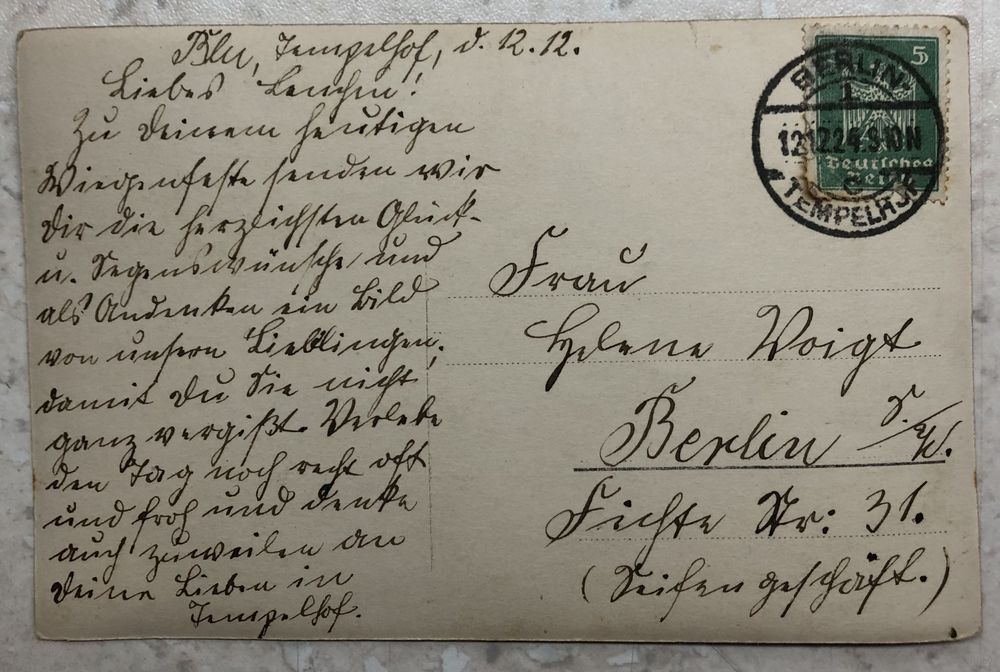 Bln, Tempelhof, d. 12.12.
Liebes Lenchen!
Zu Deinem heutigen
Wiegenfeste senden wir
Dir die herzlichsten Glück-
u. Segenswünsche und
als Andenken ein Bild
von unsern Lieblingen,
damit Du Sie nicht
ganz vergißt. Verlebe
den Tag noch recht oft
und froh und denke
auch zuweilen an
Deine Lieben in
Tempelhof.
5
Deutsches
Reich
BERLIN
1
12.12.24.9-10N
TEMPELHOF
Frau
Helene Voigt
Berlin S/W.
Fichte Str: 31.
(Seifengeschäft.)